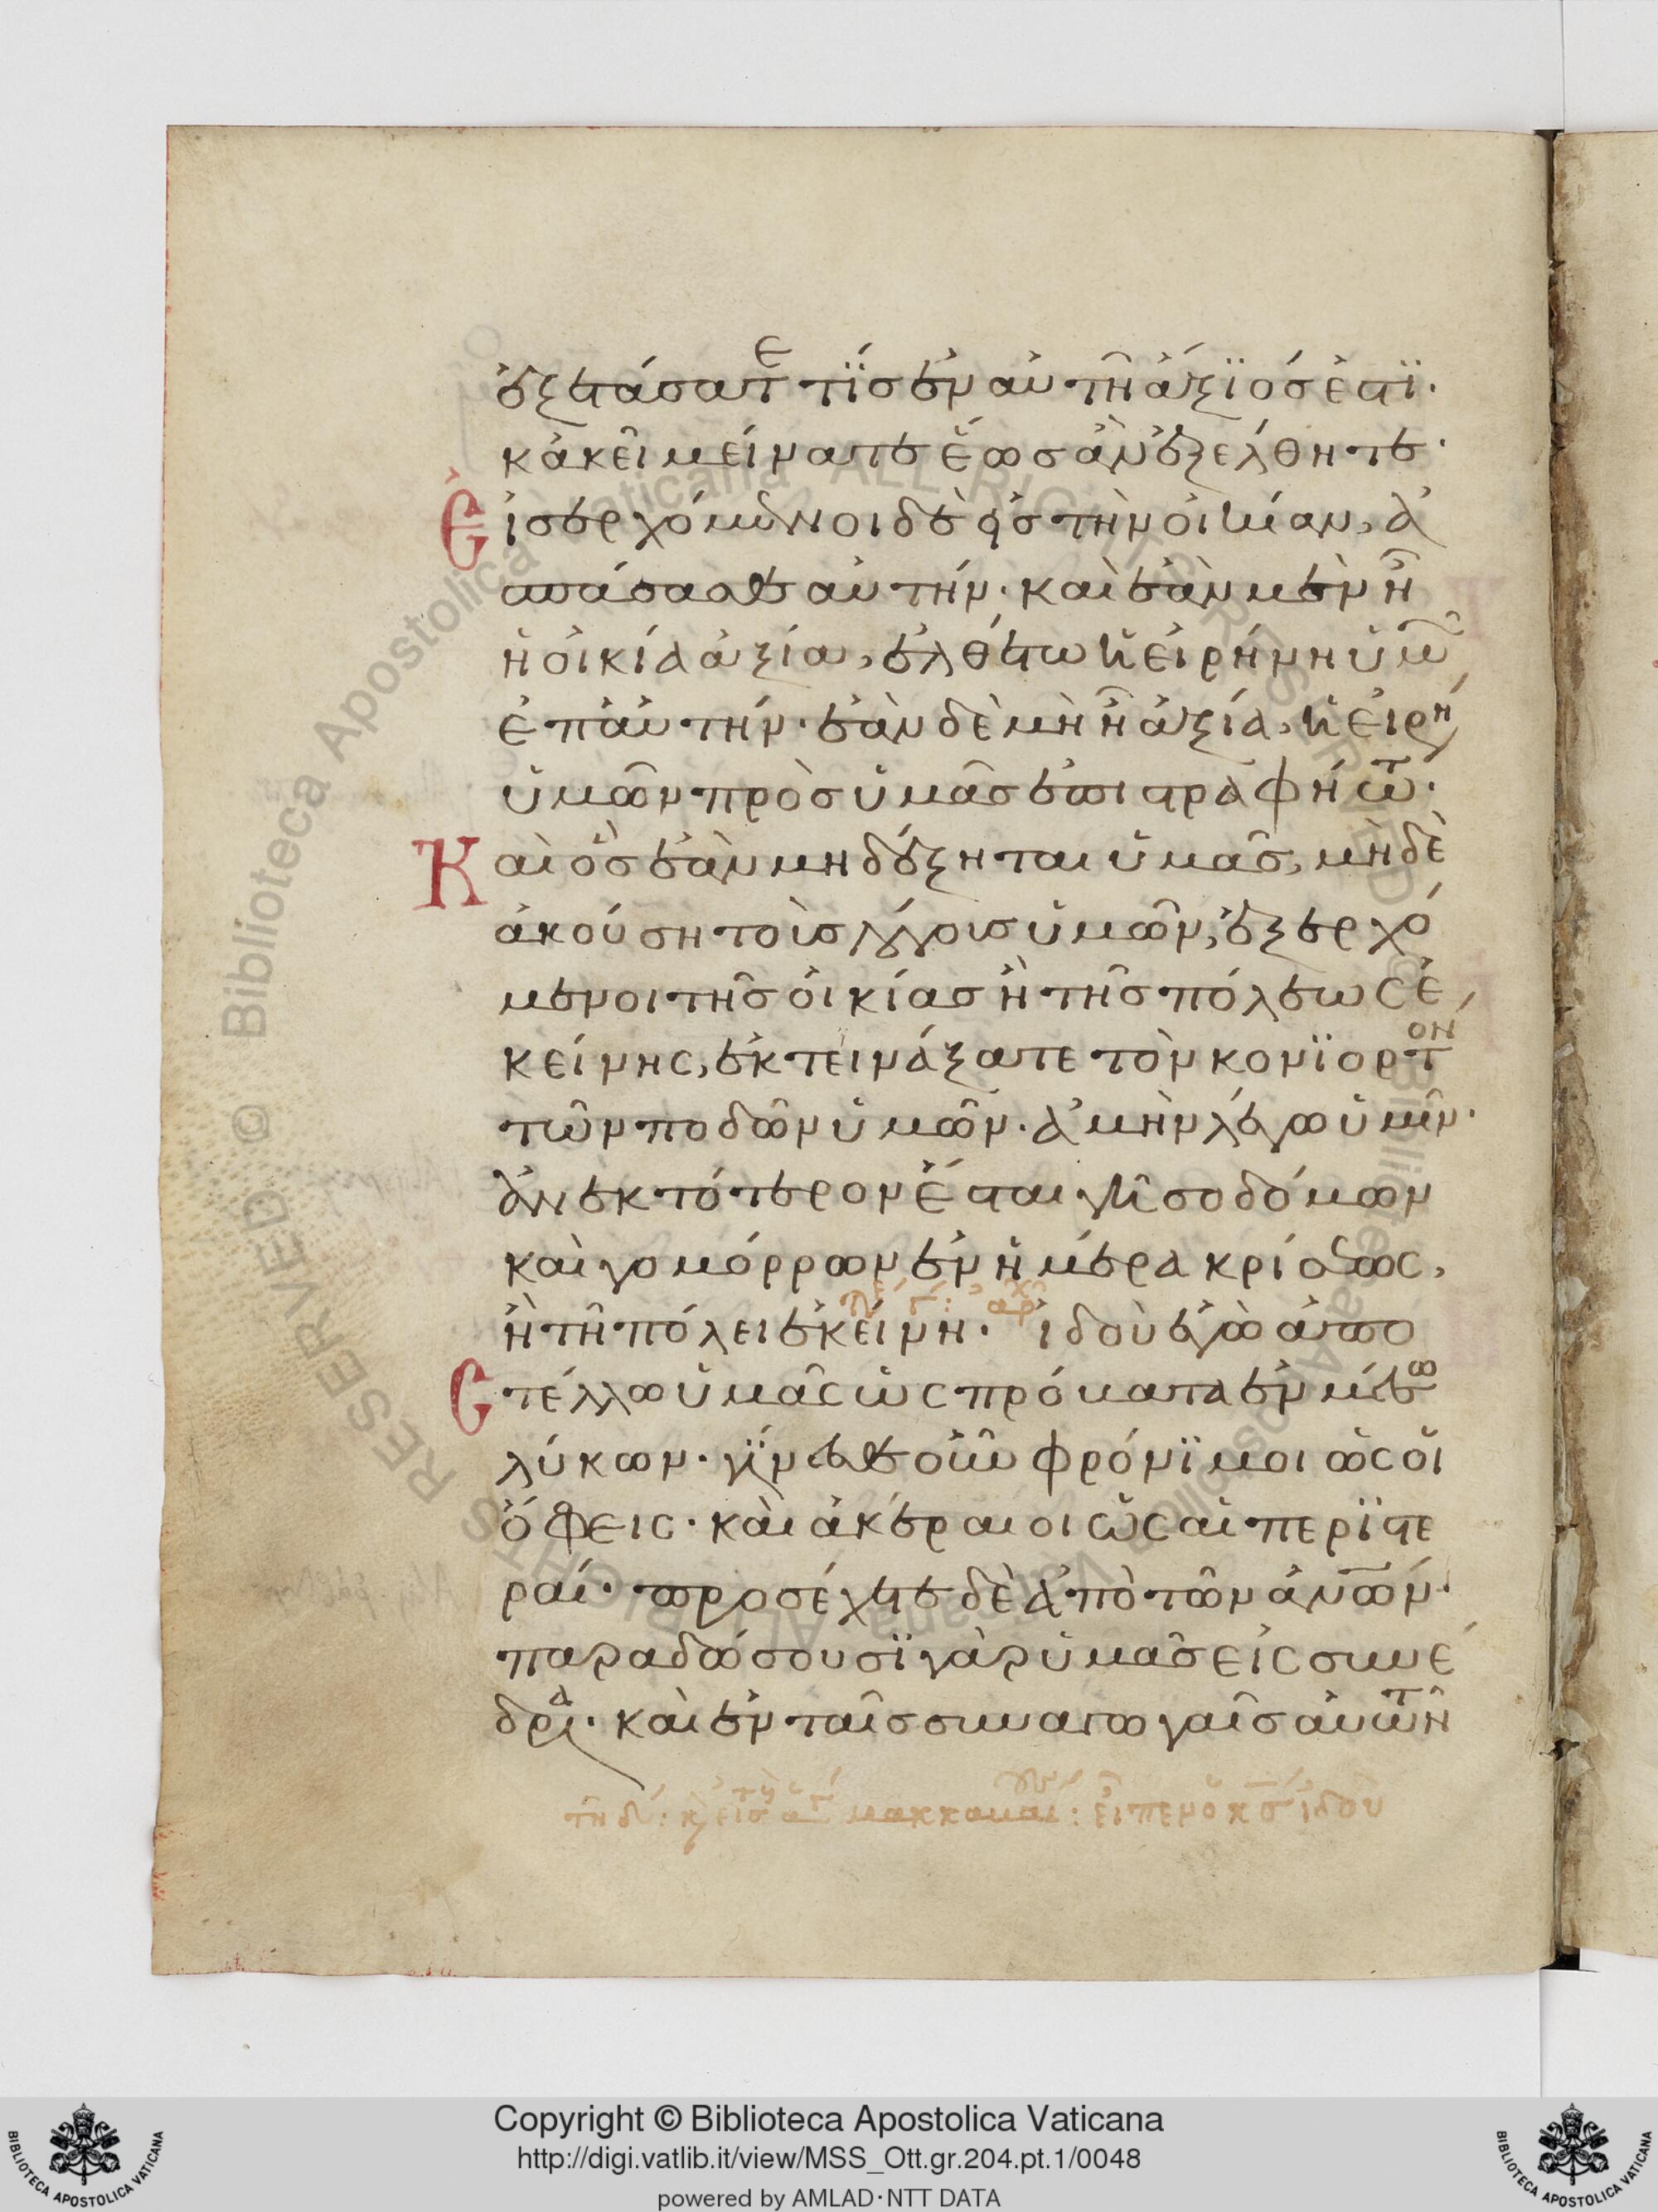 ἐξετάσατε τΐς ἐν αὐτῆ ἄξϊός ἐστϊ·
κἀκεῖ μείνατε ἕως ἂν ἐξέλθητε·
Εἰσερχόμενοι δὲ εἰς τὴν οἰκίαν, ἀ
σπάσασθε αὐτήν· καὶ ἐὰν μὲν ἦ
ἡ οἰκία ἀξία, ἐλθέτω ἡ εἰρήνη ὑμῶ
ἐπ' αὐτήν· ἐὰν δὲ μὴ ἦ ἀξία, ἡ εἰρή
ὑμῶν πρὸς ὑμᾶς ἐπιστραφήτω·
Καὶ ὃς ἐὰν μὴ δέξηται ὑμᾶς, μὴδὲ
ἀκούση τοὺς λόγους ὑμῶν, ἐξερχό
μενοι τῆς οἰκίας ἢ τῆς πόλεως ἐ
κείνης, ἐκτεινάξατε τὸν κονϊορτον
τῶν ποδῶν ὑμῶν· ἀμὴν λέγω ὑμῖν·
ἀνεκτότερον ἔσται γῆ σοδόμων
καὶ γομόρρων ἐν ἡμέρα κρίσεως,
ἢ τῆ πόλει ἐκείνη· ἰδοὺ ἐγὼ ἀπο
στέλλω ὑμᾶς ὡς πρόβατα ἐν μέσω
λύκων· γΐνεσθε οὖν φρόνϊμοι ὡς οἱ
ὄφεις· καὶ ἀκέραιοι ὡς αἱ περϊστε
ραί· προσέχετε δὲ ἀπὸ τῶν ἀνων·
παραδώσουσϊ γὰρ ὑμᾶς εἰς συνέ
δρια· καὶ ἐν ταῖς συναγωγαῖς αὐτῶν
μακκαμαί: εἶπεν ὁ κς ἰδοὺ
RESERVED © Biblioteca Apostolica Vaticana ALL RIGHTS RESERVED © Biblioteca Apostolica Vaticana ALL RIGHTS
Copyright © Biblioteca Apostolica Vaticana
http://digi.vatlib.it/view/MSS_Ott.gr.204.pt.1/0048
powered by AMLAD·NTT DATA
BIBLIOTECA APOSTOLICA VATICANA
BIBLIOTECA APOSTOLICA VATICANA